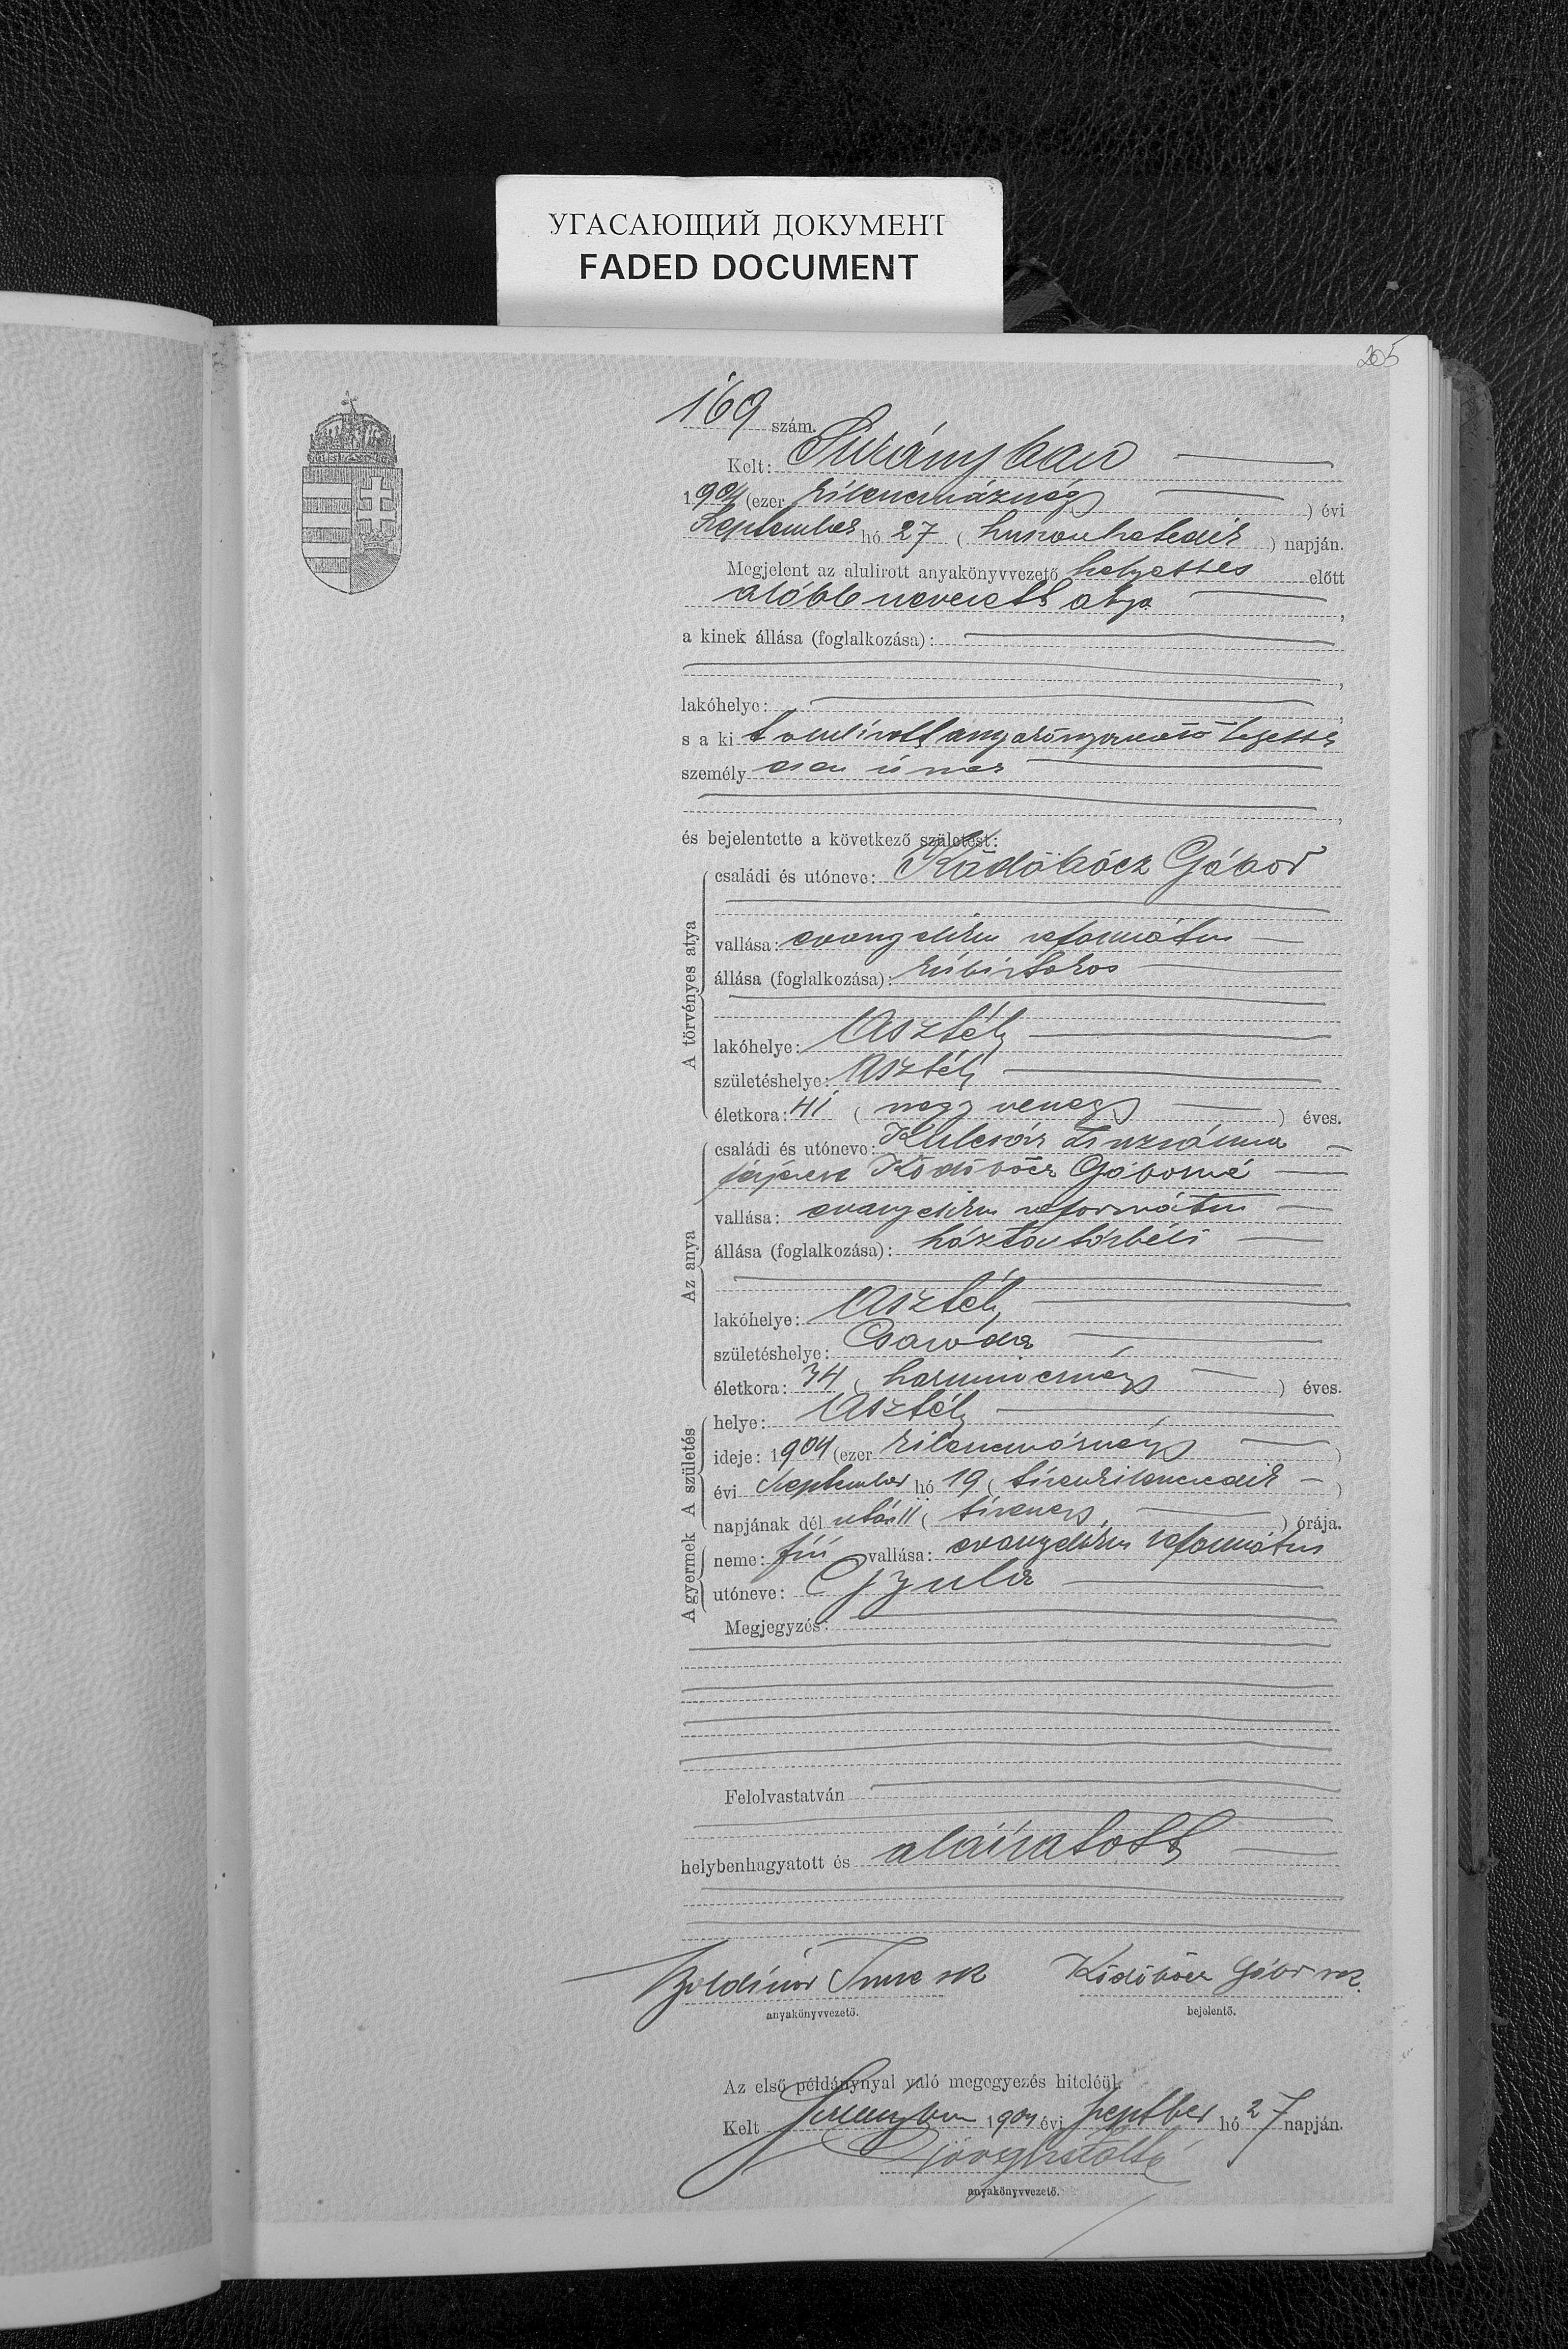 УГАСАЮЩИЙ ДОКУМЕНТ
FADED DOCUMENT
205
169 szám.
Kelt: Surányban
1904 (ezer kilencszáznégy) évi
September hó 27 (huszonhetedik) napján.
Megjelent az alulirott anyakönyvvezető helyettes előtt
alább nevezett atya,
a kinek állása (foglalkozása):
lakóhelye:
s a ki
személy ismer
és bejelentette a következő születést:
A törvényes atya
családi és utóneve: Ködöböcz Gábor
vallása: evangelikus református
állása (foglalkozása): kisbirtokos
lakóhelye: Asztély
születéshelye: Asztély
életkora: 41 (negyvenegy) éves.
Az anya
családi és utóneve: Kulcsár Zsuzsánna
férjezve Ködöböcz Gáborné
vallása: evangelikus református
állása (foglalkozása): háztartásbeli
lakóhelye: Asztély
születéshelye: Csaroda
életkora: 34 (harmincnégy) éves.
A születés
helye: Asztély
ideje: 1904 (ezer kilencszáznégy)
évi September hó 19 (tizenkilencedik)
napjának dél után 11 (tizenegy) órája.
A gyermek
neme: fiú vallása: evangelikus református
utóneve: Gyula
Megjegyzés:
Felolvastatván
helybenhagyatott és aláiratott
Imre sk
Ködöböcz Gábor sk.
anyakönyvvezető.
bejelentő.
Az első példánynyal való megegyezés hiteléül.
Kelt 1904 évi Septber hó 27 napján.
anyakönyvvezető.